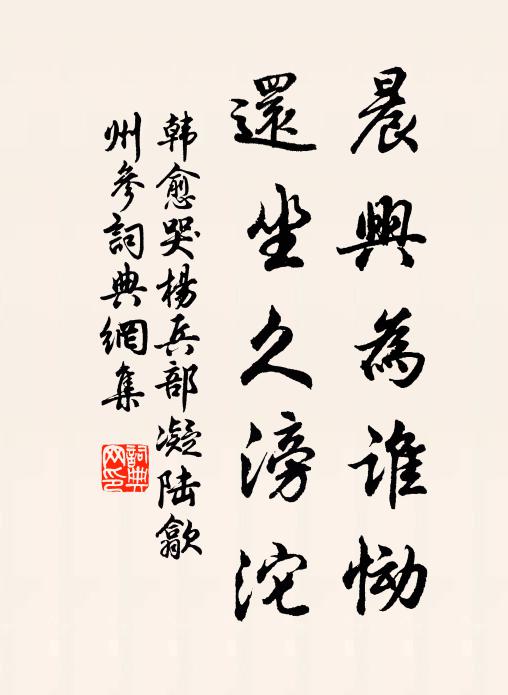 晨興為誰慟
還坐久滂沱
韩愈哭楊兵部凝陸歙
州參詞典網集
詞典
网印